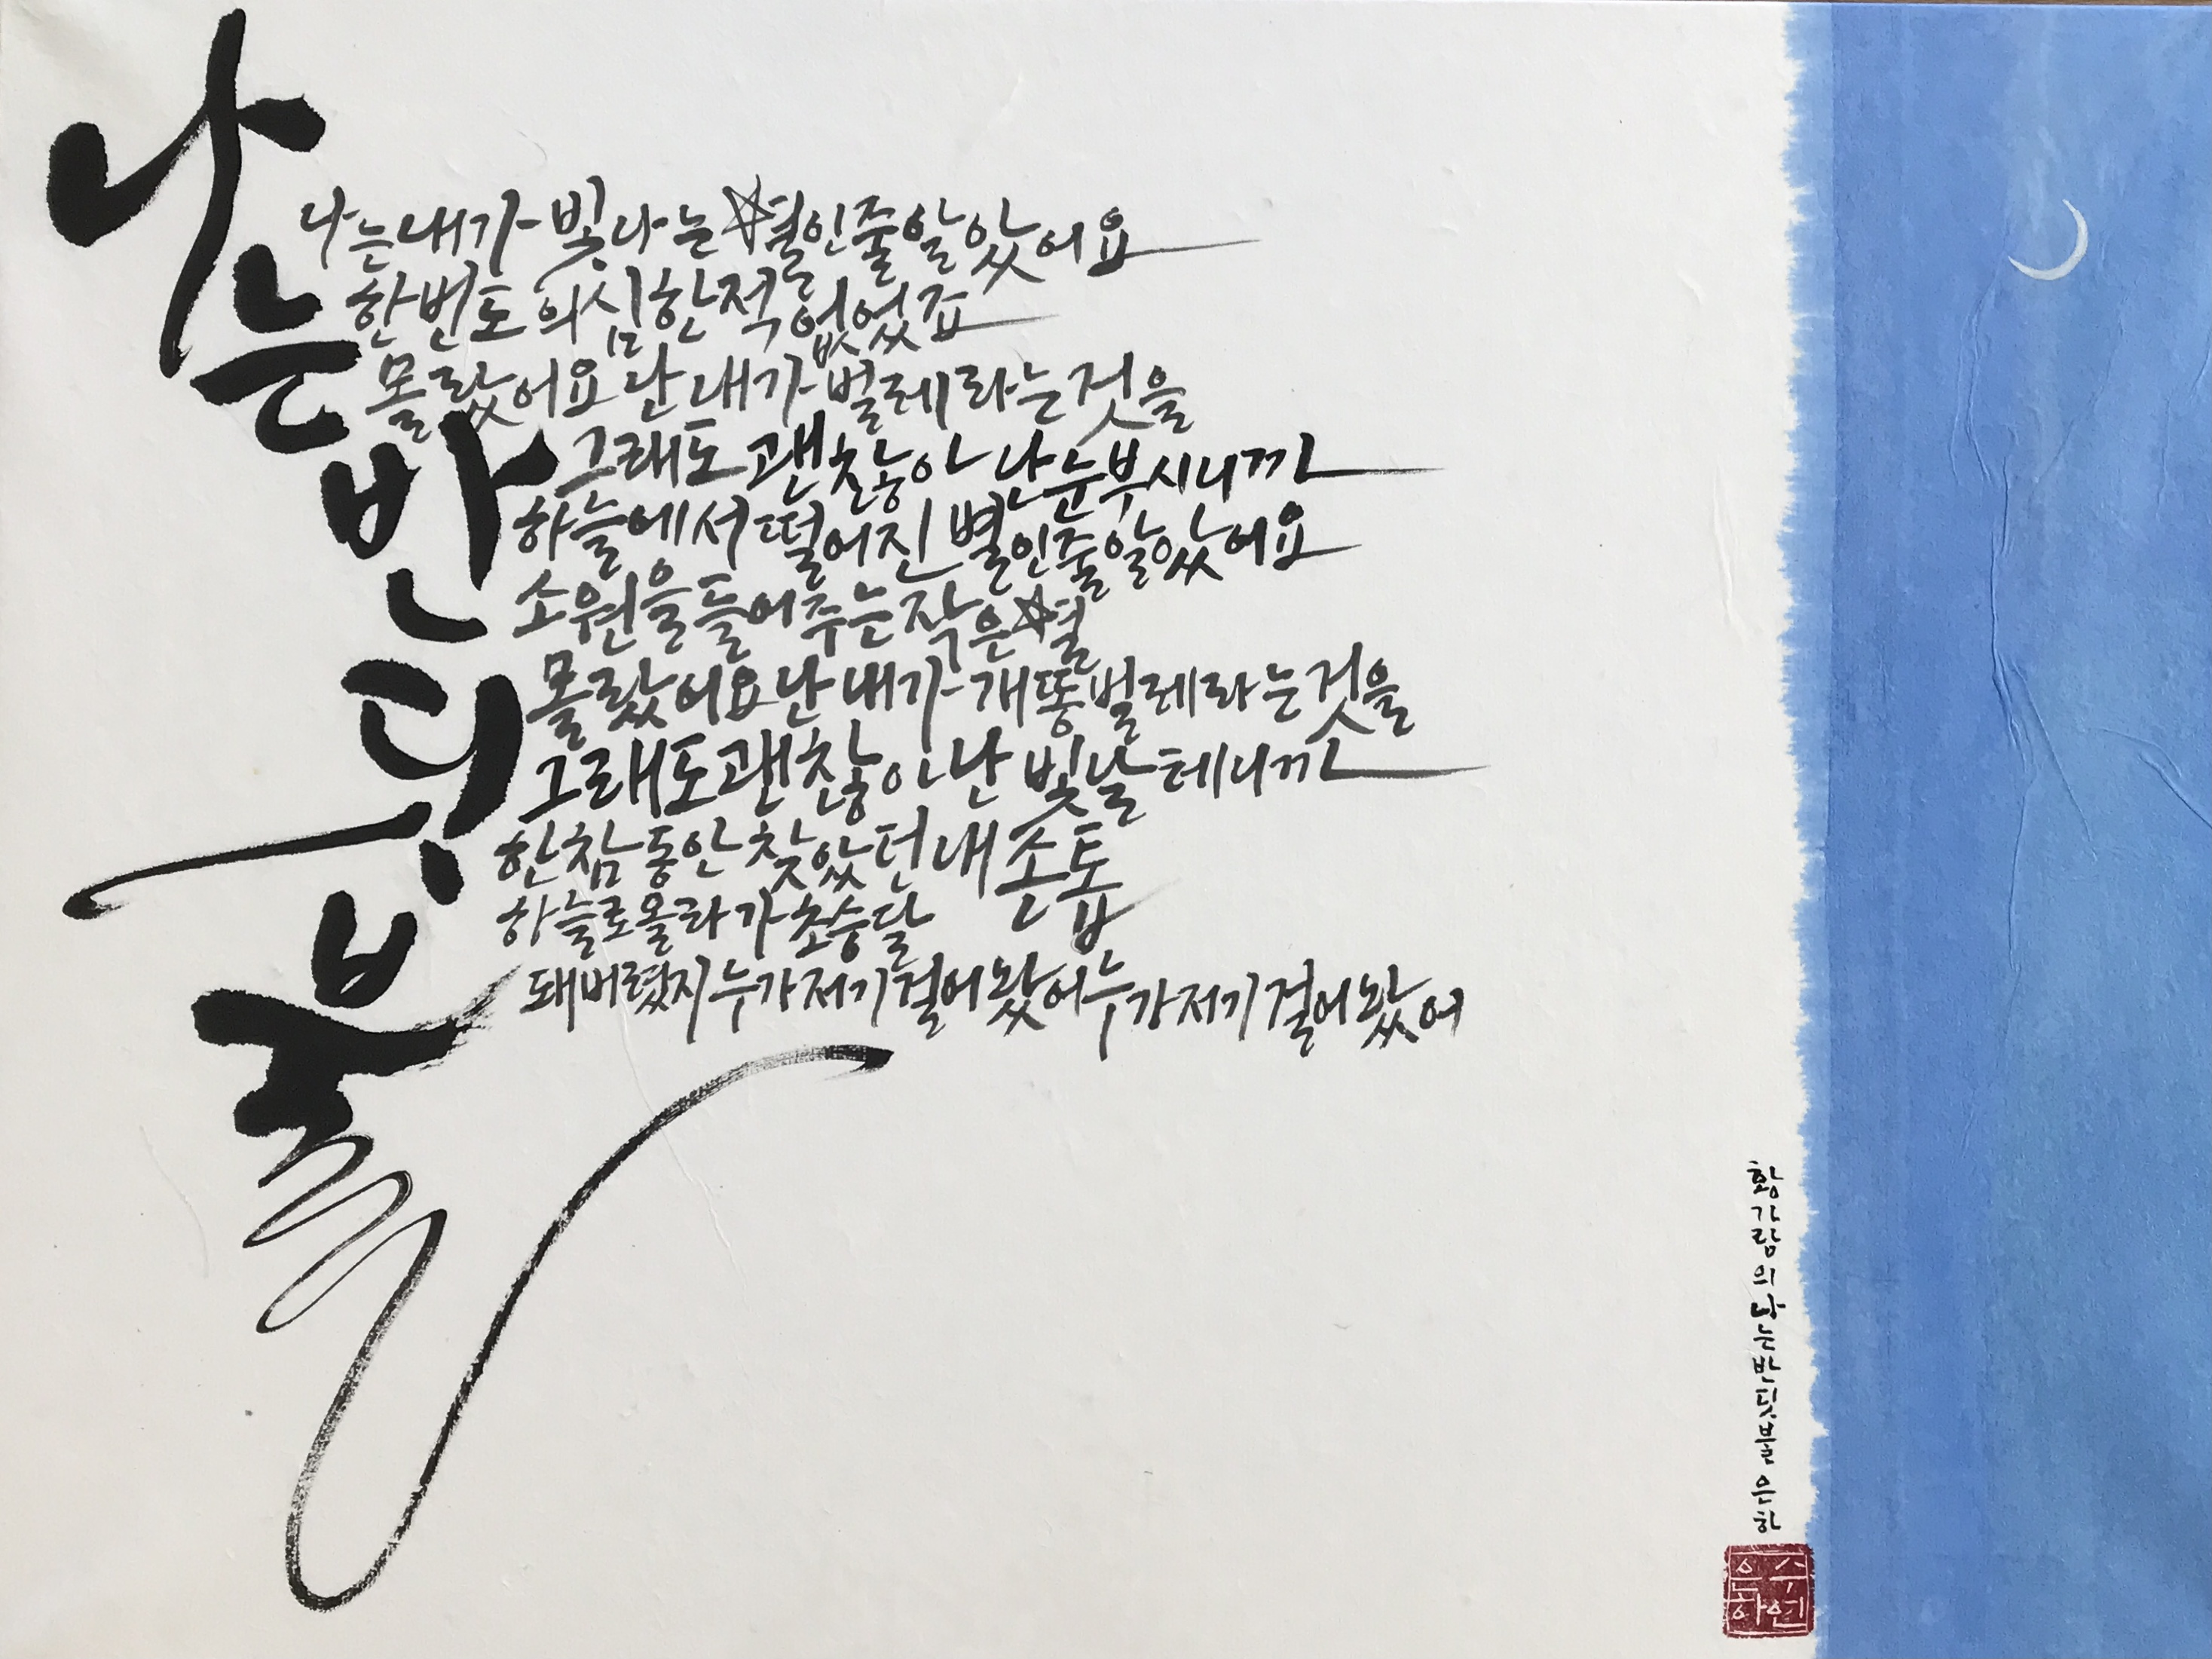 나는 반딧불
나는 내가 빛나는 별인 줄 알았어요
한번도 의심한 적 없었죠
몰랐어요 난 내가 벌레라는 것을
그래도 괜찮아 난 눈부시니까
하늘에서 떨어진 별인 줄 알았어요
소원을 들어주는 작은 별
몰랐어요 난 내가 개똥벌레라는 것을
그래도 괜찮아 난 빛날 테니까
한참 동안 찾았던 내 손톱
하늘로 올라가 초승달
돼버렸지 누가 저기 걸어놨어 누가 저기 걸어놨어
황가람의 나는 반딧불 은하